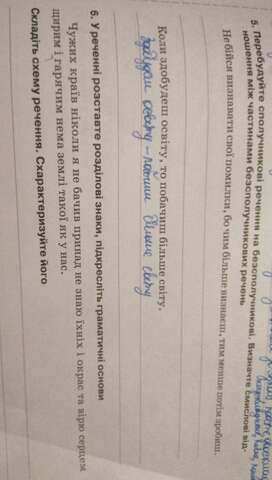 5. Перебудуйте сполучникові речення на безсполучникові. Визначте смислові від-
ношення між частинами безсполучникових речень
Не бійся визнавати свої помилки, бо чим більше визнаєш, тим менше потім зробиш.
Коли здобудеш освіту, то побачиш більше світу.
освіту – більше світу
6. У реченні розставте розділові знаки, підкресліть граматичні основи
Чужих країв ніколи я не бачив принад не знаю їхніх і окрас та вірю серцем
щирим і гарячим нема землі такої як у нас.
Складіть схему речення. Схарактеризуйте його